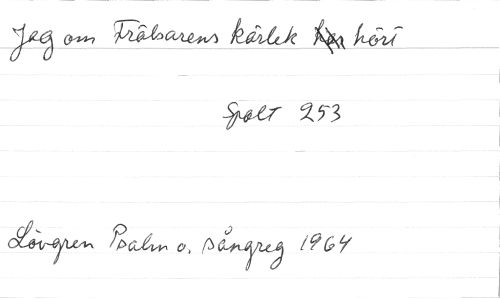 Jag om Frälsarens kärlek har hört
Spalt 253
Lövgren Psalm o. sångreg 1964